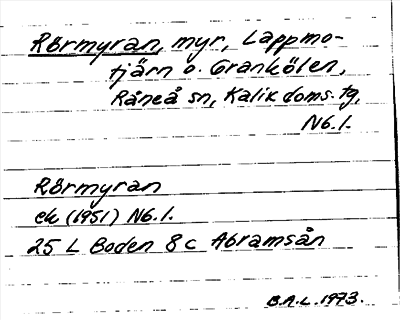 Rörmyran, myr, Lappmo-
tjärn o. Grankölen,
Råneå sn, Kalix doms. tg,
Nb. l.
Rörmyran
ek (1951) Nb. l.
25 L Boden 8 c Abramsån
B.A.L. 1973.